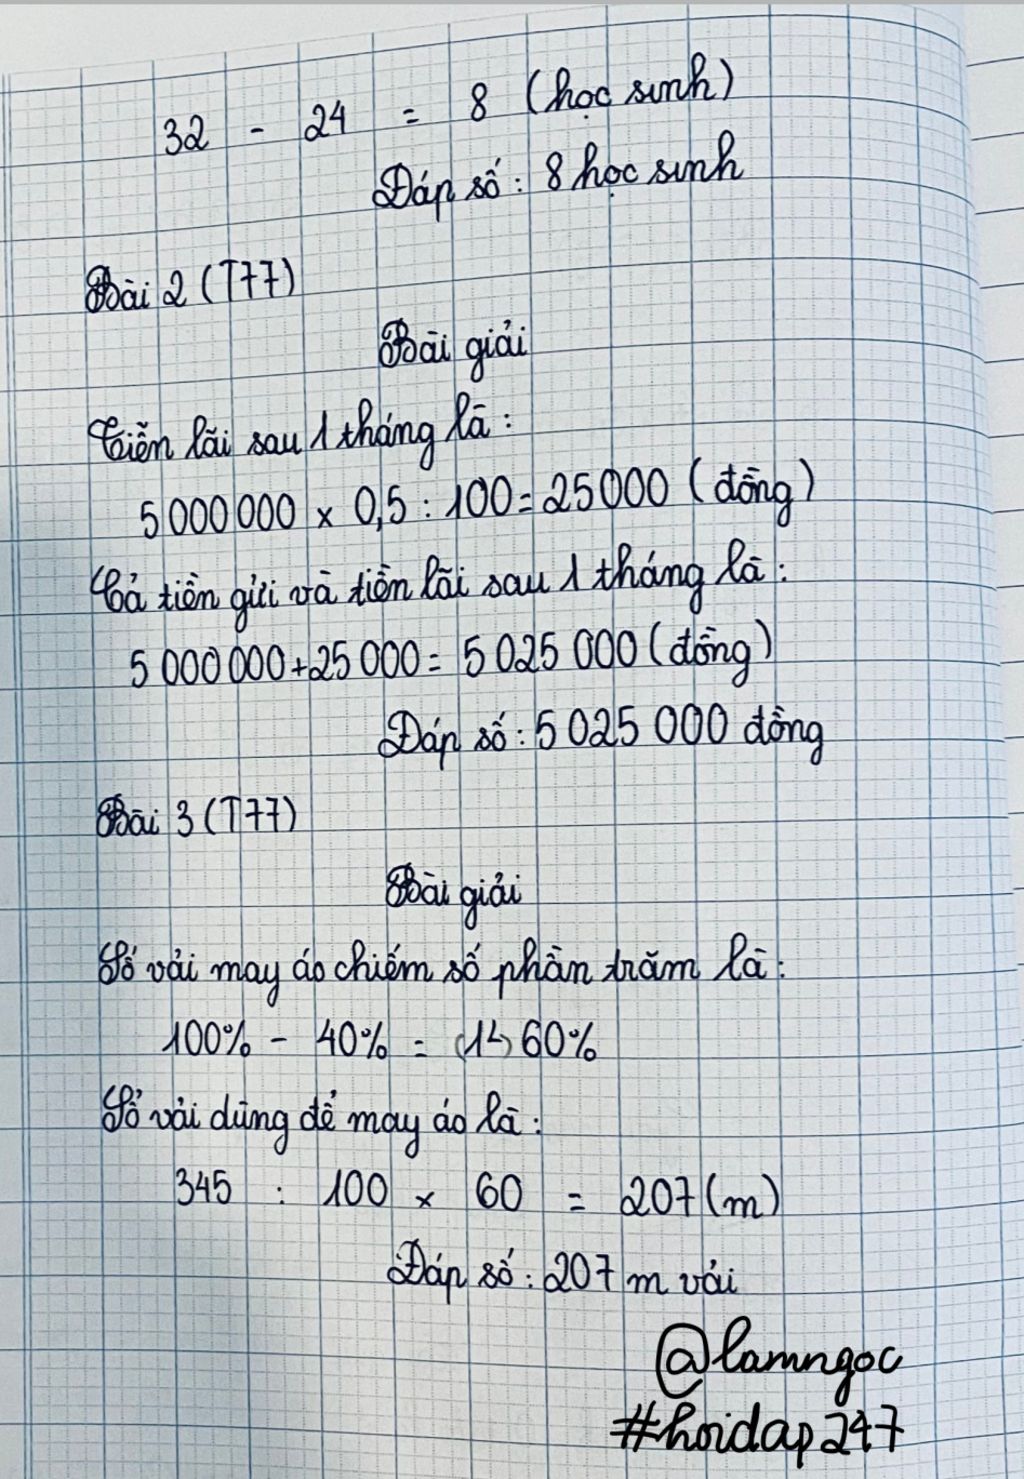 32 - 24 = 8 (học sinh)
Đáp số: 8 học sinh
Bài 2 (T77)
Bài giải
Tiền lãi sau 1 tháng là:
5 000 000 x 0,5 : 100 = 25 000 (đồng)
Cả tiền gửi và tiền lãi sau 1 tháng là:
5 000 000 + 25 000 = 5 025 000 (đồng)
Đáp số: 5 025 000 đồng
Bài 3 (T77)
Bài giải
Số vải may áo chiếm số phần trăm là:
100% - 40% = 60%
Số vải dùng để may áo là:
345 : 100 x 60 = 207 (m)
Đáp số: 207 m vải
@lamngoc
#hoidap247